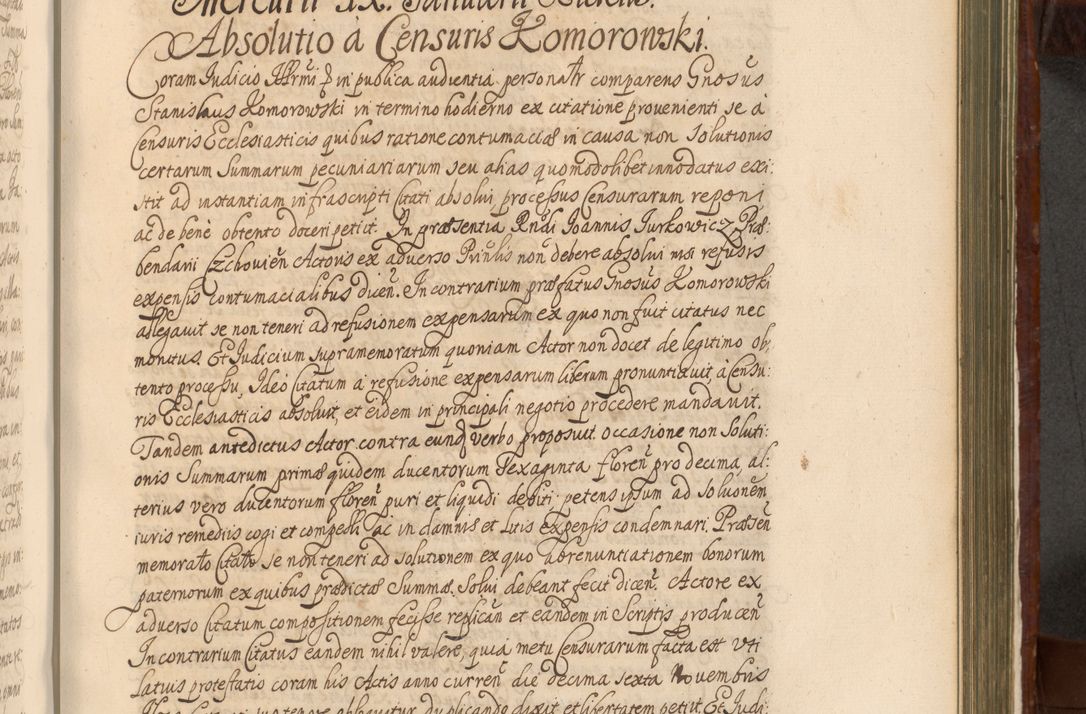 Mercurii IX. Januarii
Absolutio à Censuris Komorowski.
Coram Iudicio in publica audientia personalr comparens Gnosus
Stanislaus Komorowski in termino hodierno ex citatione provenienti se à
Censuris Ecclesiasticis quibus ratione contumaciæ in causa non Solutionis
certarum Summarum pecuniariarum seu alias quomodolibet innodatus exi:
stit ad instantiam infrascripti Citati absolui processus Censurarum reponi
ac de bene obtento doceri petiit. In præsentia Rndi Ioannis Iurkowicz Præ:
bendarii Czchovien Actoris ex adverso Prinlis non debere absolui nisi refusis
expensis contumacialibus dicen. In contrarium præfatus Gnosus Komorowski
allegavit se non teneri ad refusionem expensarum ex quo non fuit citatus nec
monitus. Et Iudicium supramemoratum quoniam Actor non docet de legitimo ob,
tento processu, Ideò Citatum a refusione expensarum liberum pronuntiavit, à Censu:
ris Ecclesiasticis absoluit, et eidem in principali negotio procedere mandavit.
Tandem antedictus Actor contra eund verbo proposuit occasione non Soluti:
onis Summarum primæ quidem ducentorum Sexaginta floren pro decima, al:
terius vero ducentorum floren puri et liquidi debiti petens ipsum ad Soluonem
iuris remediis cogi et compelli ac in damnis et Litis expensis condemnari. Præsen
memorato Citato se non teneri ad solutionem ex quo abrenuntiationem bonorum
paternorum ex quibus prædictæ Summæ Solui debeant fecit dicen. Actore ex
adverso Citatum compositionem fecisse replican et eandem in Scriptis producen
In contrarium Citatus eandem nihil valere, quia metu Censurarum facta est uti
Latius protestatio coram his Actis anno curren die decima sexta Novembris
duplicando dixit et libertatem petiit Et Iudi: